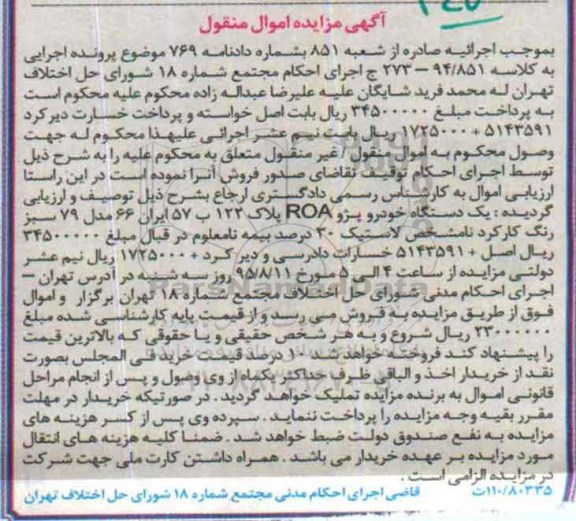 آگهی مزایده اموال منقول
بموجب اجرائیه صادره از شعبه ۸۵۱ بشماره دادنامه ۷۶۹ موضوع پرونده اجرایی
به کلاسه ۹۴/۸۵۱ – ۲۷۳ ج اجرای احکام مجتمع شماره ۱۸ شورای حل اختلاف
تهران له محمد فرید شایگان علیه علیرضا عبداله زاده محکوم علیه محکوم است
به پرداخت مبلغ ۳۴۵۰۰۰۰۰ ریال بابت اصل خواسته و پرداخت خسارت دیر کرد
۵۱۴۳۵۹۱ + ۱۷۲۵۰۰۰ ریال بابت نیم عشر اجرائی علیهذا محکوم له جهت
وصول محکوم به اموال منقول / غیر منقول متعلق به محکوم علیه را به شرح ذیل
توسط اجرای احکام توقیف تقاضای صدور فروش آنرا نموده است در این راستا
ارزیابی اموال به کارشناس رسمی دادگستری ارجاع بشرح ذیل توصیف و ارزیابی
گردیده : یک دستگاه خودرو پژو ROA پلاک ۱۲۲ ب ۵۷ ایران ۶۶ مدل ۷۹ سبز
رنگ کارکرد نامشخص لاستیک ۳۰ درصد بیمه نامعلوم در قبال مبلغ ۳۴۵۰۰۰۰۰
ریال اصل + ۵۱۴۳۵۹۱ خسارات دادرسی و دیر کرد + ۱۷۲۵۰۰۰ ریال نیم عشر
دولتی مزایده از ساعت ۴ الی ۵ مورخ ۹۵/۸/۱۱ روز سه شنبه در آدرس تهران –
اجرای احکام مدنی شورای حل اختلاف مجتمع شماره ۱۸ تهران برگزار و اموال
فوق از طریق مزایده به فروش می رسد و از قیمت پایه کارشناسی شده مبلغ
۲۳۰۰۰۰۰۰ ریال شروع و به هر شخص حقیقی و یا حقوقی که بالاترین قیمت
را پیشنهاد کند فروخته خواهد شد ۱۰ درصد قیمت خرید فی المجلس بصورت
نقد از خریدار اخذ و الباقی ظرف حداکثر یکماه از وی وصول و پس از انجام مراحل
قانونی اموال به برنده مزایده تملیک خواهد گردید . در صورتیکه خریدار در مهلت
مقرر بقیه وجه مزایده را پرداخت ننماید . سپرده وی پس از کسر هزینه های
مزایده به نفع صندوق دولت ضبط خواهد شد . ضمنا کلیه هزینه های انتقال
مورد مزایده بر عهده خریدار می باشد . همراه داشتن کارت ملی جهت شرکت
در مزایده الزامی است .
۱۱۰/۸۰۳۳۵ت قاضی اجرای احکام مدنی مجتمع شماره ۱۸ شورای حل اختلاف تهران